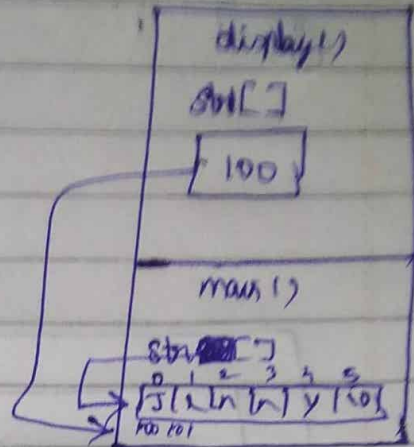 display()
str[]
100
main()
str[]
0 1 2 3 4 5
J i n n y \0
100 101